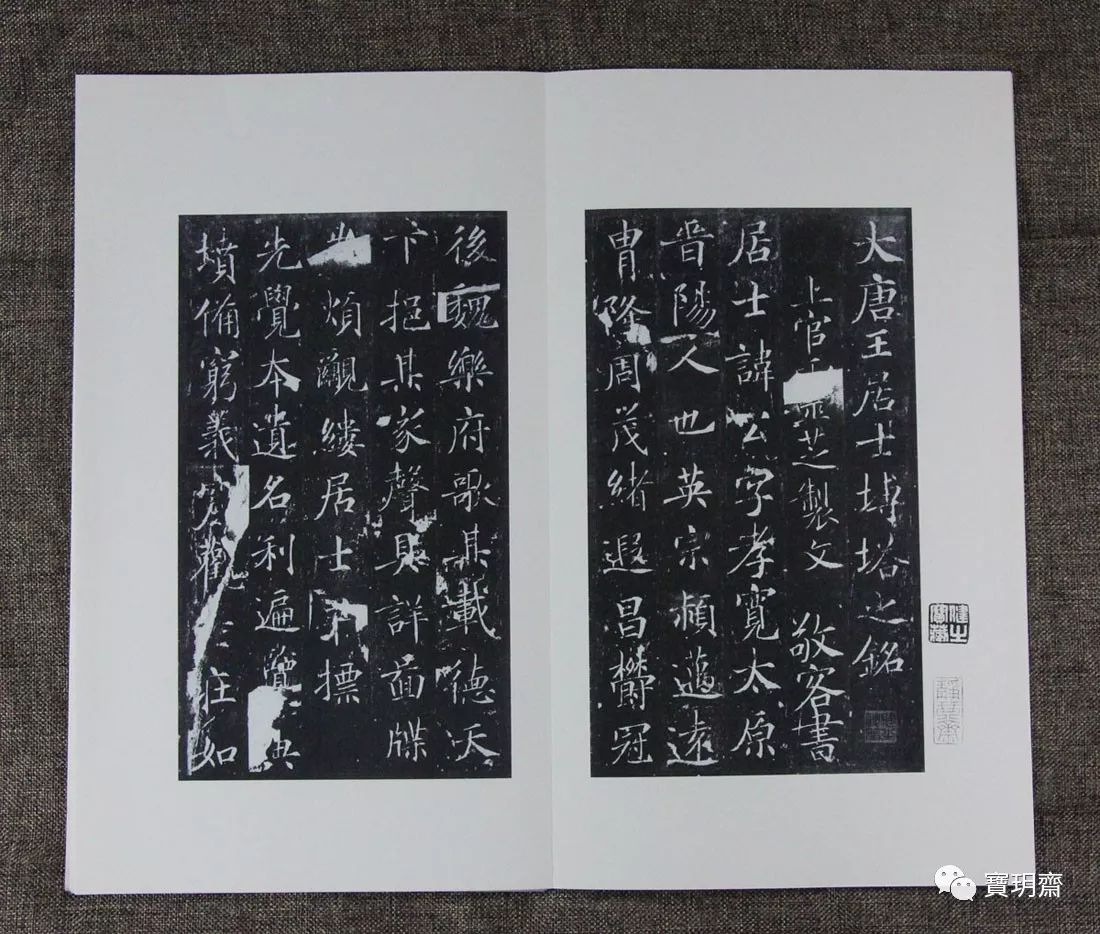 大唐王居士塼塔之銘
上官靈芝製文 敬客書
居士諱公字孝寬太原
晉陽人也英宗頏邁遠
冑隆周茂緒遐昌欝冠
後魏樂府歌其載德天
下挹其家聲具詳圖牒
煩覼縷居士早標
先覺本遺名利遍覽典
墳備窮義窟觀老莊如
寶玥齋